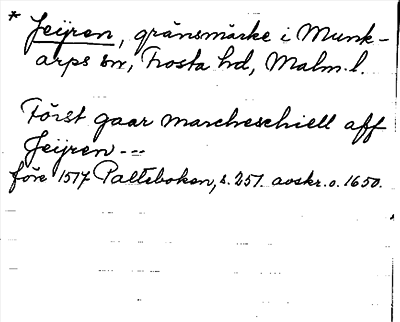 * Jeijren, gränsmärke i Munk-
arps sn, Frosta hd, Malm. l.
Först gaar marcheschiell aff
Jeijren ---
före 1517 Palteboken, s. 257. avskr. o. 1650.